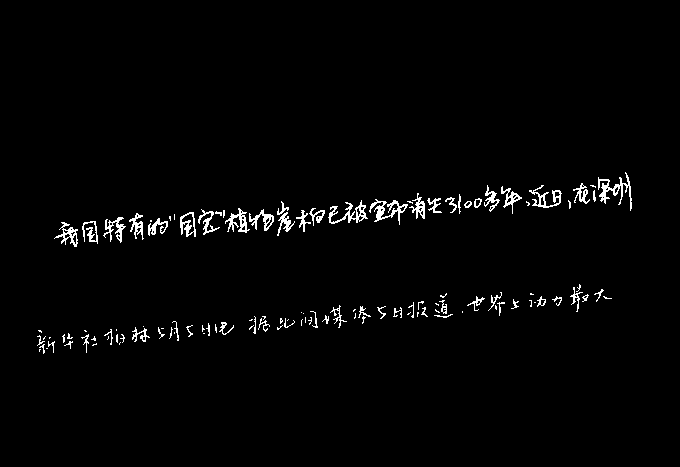 我国特有的“国宝”植物崖柏已被宣布消失了100多年,近日,在深圳
新华社柏林5月5日电 据此间媒体5日报道,世界上动力最大